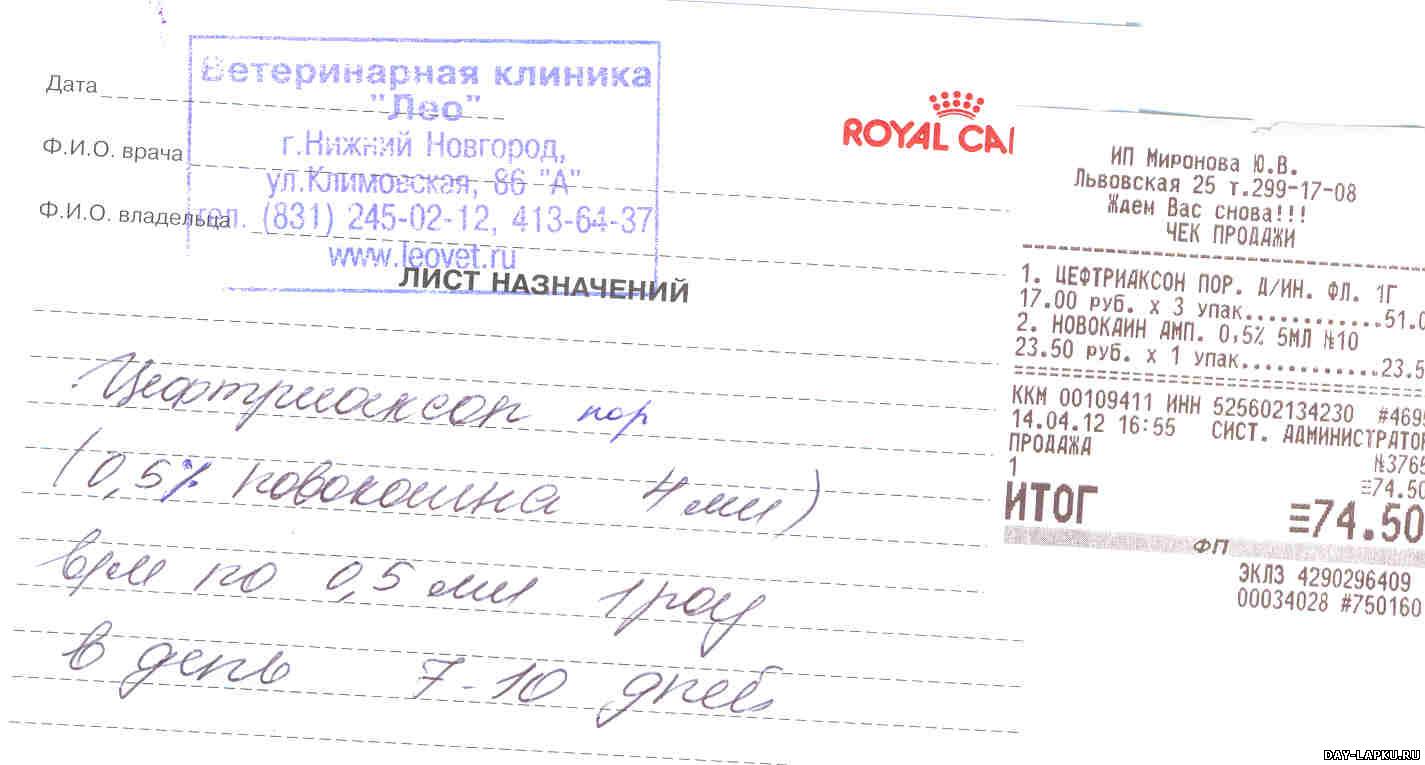 Ветеринарная клиника
"Лео"
г.Нижний Новгород,
ул.Климовская, 86 "А"
тел. (831) 245-02-12, 413-64-37
www.leovet.ru
Дата
Ф.И.О. врача
Ф.И.О. владельца
ROYAL CAI
ЛИСТ НАЗНАЧЕНИЙ
Цефтриаксон пор
(0,5% новокаина 4 мл)
в/м по 0,5 мл 1 раз
в день 7-10 дней
ИП Миронова Ю.В.
Львовская 25 т.299-17-08
Ждем Вас снова!!!
ЧЕК ПРОДАЖИ
1. ЦЕФТРИАКСОН ПОР. Д/ИН. ФЛ. 1Г
17.00 руб. х 3 упак............51.0
2. НОВОКАИН АМП. 0,5% 5МЛ №10
23.50 руб. х 1 упак............23.5
ККМ 00109411 ИНН 525602134230 #4695
14.04.12 16:55 СИСТ. АДМИНИСТРАТОР
ПРОДАЖА №3765
1 ≡74.50
ИТОГ ≡74.50
ФП
ЭКЛЗ 4290296409
00034028 #750160
DAY-LAPKU.RU